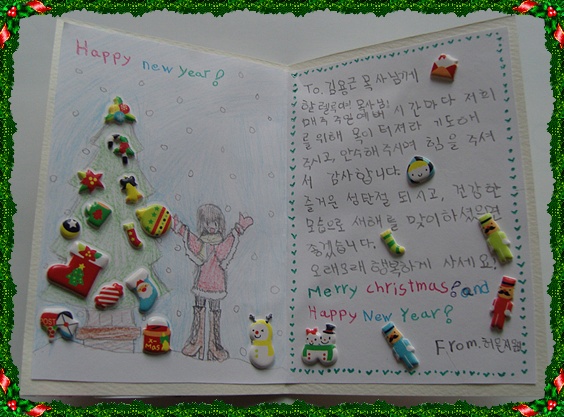 Happy new year!
To. 김용근 목사님께
할렐루야 목사님!
매주 주일예배 시간마다 저희
를 위해 목이 터져라 기도해
주시고, 안수해 주시며 힘을 주셔
서 감사합니다.
즐거운 성탄절 되시고, 건강한
모습으로 새해를 맞이하셨으면
좋겠습니다.
오래오래 행복하게 사세요!
Merry christmas! and
Happy New Year!
From.
X-MAS